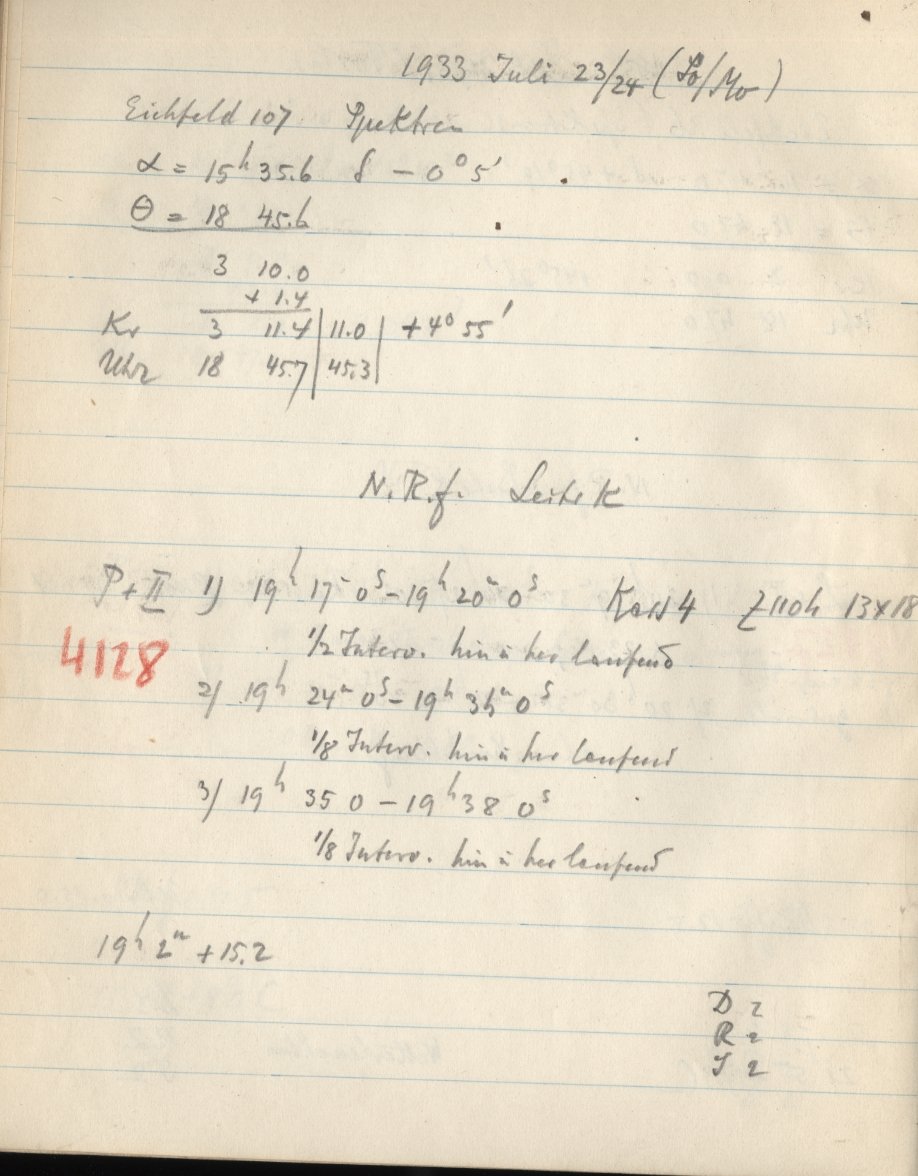 1933 Juli 23/24 (So/Mo)
Eichfeld 107 Spektren
α = 15h 35.6 δ - 0° 5'
Θ = 18 45.6
3 10.0
+ 1.4
Kr 3 11.4 | 11.0 | + 4° 55'
Uhr 18 45.7 | 45.3 |
N.R.f. K
P + II 1) 19h 17m 0s - 19h 20m 0s Kass 4 13 x 18
1/2 Interv. hin u her laufend
4128
2) 19h 24m 0s - 19h 34m 0s
1/8 Interv. hin u her laufend
3) 19h 35 0 - 19h 38 0s
1/8 Interv. hin u her laufend
19h 2m + 15.2
D 2
R 2
S 2